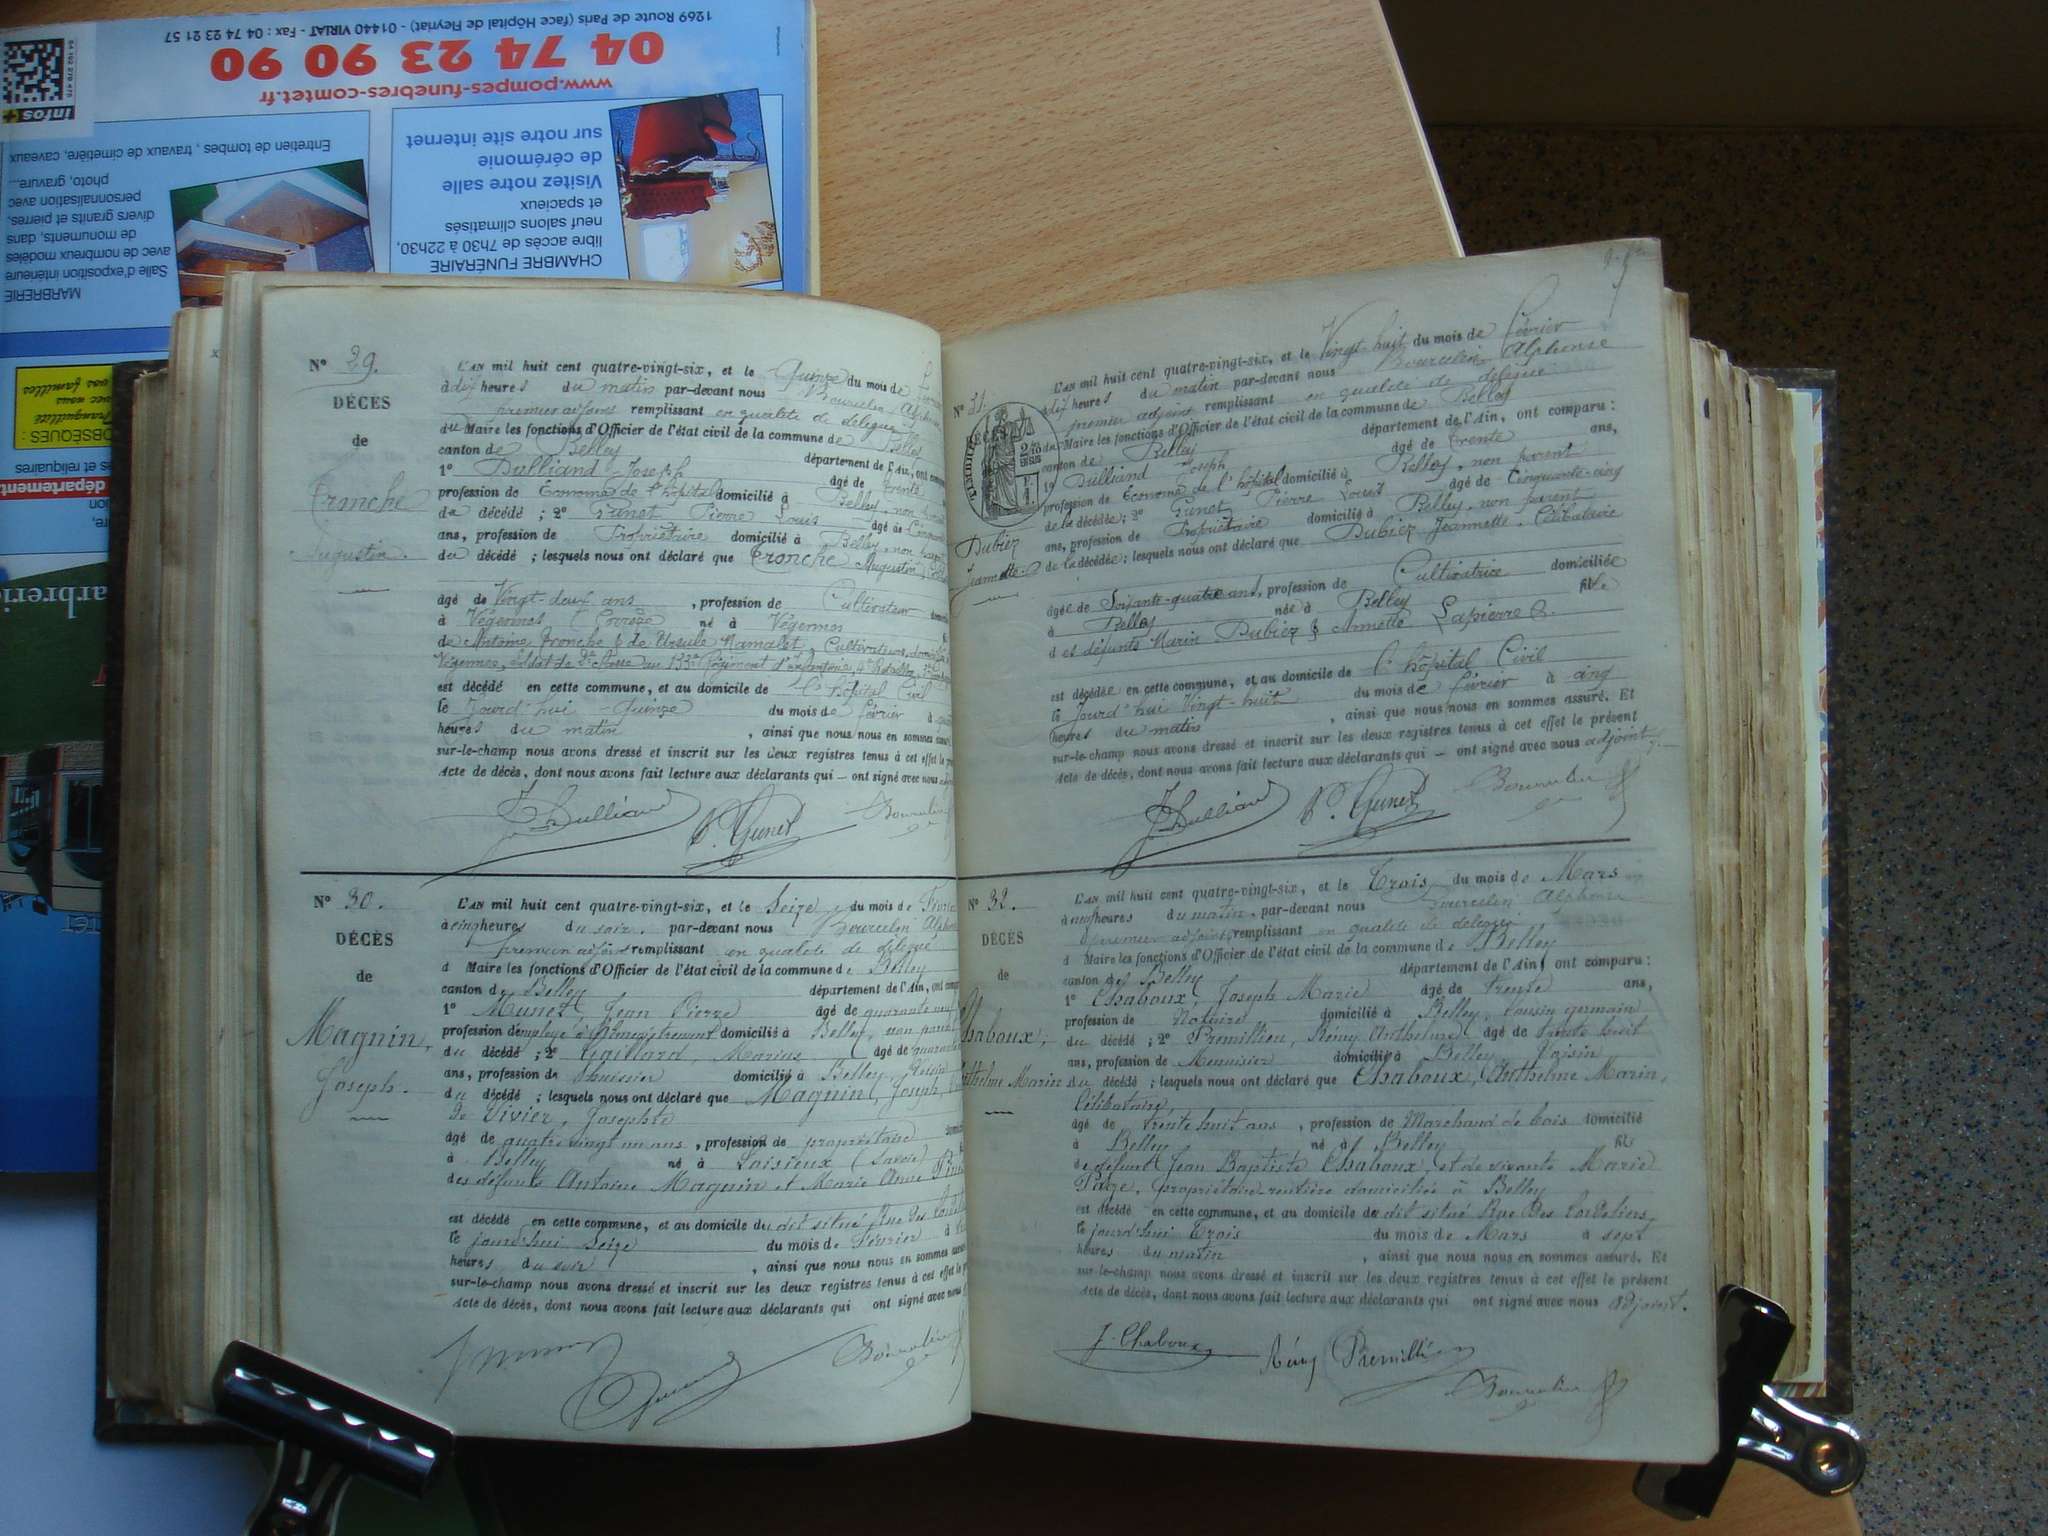 1269 Route de Paris (face Hôpital de Fleyriat) - 01440 VIRIAT - Fax : 04 74 23 21 57
04 74 23 90 90
www.pompes-funebres-comtet.fr
infos+
Entretien de tombes, travaux de cimetière, caveaux
MARBRERIE
Salle d'exposition intérieure
avec de nombreux modèles
de monuments, dans
divers granits et pierres,
personnalisation avec
photo, gravure,...
CHAMBRE FUNÉRAIRE
libre accès de 7h30 à 22h30,
neuf salons climatisés
et spacieux
Visitez notre salle
de cérémonie
sur notre site internet
OBSÈQUES :
Tranquilité
avec nous
vos familles
et reliquaires
département
N° 29.
DÉCÈS
de
Tronche
Augustin.
L'AN mil huit cent quatre-vingt-six, et le Quinze du mois de
à dix heures du matin par-devant nous Bourcelin
premier adjoint remplissant en qualité de délégué
du Maire les fonctions d'Officier de l'état civil de la commune de Belley
canton de Belley département de l'Ain, ont
1° Dulliand Joseph âgé de trente
profession de Econome de l'hôpital domicilié à Belley, non
du décédé ; 2° Gunet Pierre Louis âgé de
ans, profession de Propriétaire domicilié à Belley, non parent
du décédé ; lesquels nous ont déclaré que Tronche Augustin,
âgé de Vingt-deux ans , profession de Cultivateur
à Végennes (Corrèze né à Végennes
de Antoine Tronche & de Ursule Ramalet, Cultivateurs,
Végennes, Soldat de 2e classe au 133e Régiment d'infanterie,
est décédé en cette commune, et au domicile de L'hôpital Civil
le Jourd'hui Quinze du mois de février à
heures du matin , ainsi que nous nous en sommes
sur-le-champ nous avons dressé et inscrit sur les deux registres tenus à cet effet le
acte de décès, dont nous avons fait lecture aux déclarants qui — ont signé avec nous
J Dulliand P. Gunet Bourcelin
N° 30.
DÉCÈS
de
Magnin,
Joseph.
L'AN mil huit cent quatre-vingt-six, et le Seize, du mois de
à cinq heures du soir. par-devant nous Bourcelin
premier adjoint remplissant en qualité de délégué
d Maire les fonctions d'Officier de l'état civil de la commune de Belley
canton de Belley département de l'Ain, ont
1° Munet, Jean Pierre âgé de quarante neuf
profession d employé à l'Enregistrement domicilié à Belley, non
du décédé ; 2° Gaillard, Marius âgé de
ans, profession de huissier domicilié à Belley,
du décédé ; lesquels nous ont déclaré que Magnin, Joseph,
de Vivier, Josephte
âgé de quatre vingt un ans , profession de propriétaire
à Belley né à Loisieux (Savoie)
des défunts Antoine Magnin et Marie Anne
est décédé en cette commune, et au domicile du dit situé Rue des
le jourd'hui Seize du mois de Février à
heures du soir , ainsi que nous nous en sommes
sur-le-champ nous avons dressé et inscrit sur les deux registres tenus à cet effet le
acte de décès, dont nous avons fait lecture aux déclarants qui ont signé avec nous
Bourcelin
N° 31.
DÉCÈS
Dubiez
Jeannette.
L'AN mil huit cent quatre-vingt-six, et le Vingt-huit du mois de Février
à dix heures du matin par-devant nous Bourcelin Alphonse
premier adjoint remplissant en qualité de délégué
du Maire les fonctions d'Officier de l'état civil de la commune de Belley
canton de Belley département de l'Ain, ont comparu :
1° Dulliand Joseph âgé de trente ans,
profession de Econome de l'hôpital domicilié à Belley, non parent
de la décédée ; 2° Gunet Pierre Louis âgé de Cinquante-cinq
ans, profession de Propriétaire domicilié à Belley, non parent
de la décédée ; lesquels nous ont déclaré que Dubiez Jeannette, Célibataire
âgée de Soixante-quatre ans, profession de Cultivatrice domiciliée
à Belley née à Belley fille
des défunts Marin Dubiez & Annette Lapierre
est décédée en cette commune, et au domicile de L'hôpital Civil
le Jourd'hui Vingt-huit du mois de février à cinq
heures du matin , ainsi que nous nous en sommes assuré. Et
sur-le-champ nous avons dressé et inscrit sur les deux registres tenus à cet effet le présent
acte de décès, dont nous avons fait lecture aux déclarants qui — ont signé avec nous adjoint.
J Dulliand P. Gunet Bourcelin
N° 32.
DÉCÈS
de
Chaboux,
Anthelme Marin
L'AN mil huit cent quatre-vingt-six, et le Trois du mois de Mars
à neuf heures du matin, par-devant nous Bourcelin Alphonse
premier adjoint, remplissant en qualité de délégué
d Maire les fonctions d'Officier de l'état civil de la commune de Belley
canton de Belley département de l'Ain, ont comparu :
1° Chaboux, Joseph Marie âgé de trente ans,
profession de Notaire domicilié à Belley, Cousin germain
du décédé ; 2° Premillieu, Rémy Anthelme âgé de trente huit
ans, profession de Menuisier domicilié à Belley Voisin
du décédé ; lesquels nous ont déclaré que Chaboux, Anthelme Marin,
Célibataire,
âgé de trente huit ans , profession de Marchand de bois domicilié
à Belley né à Belley fils
de défunt Jean Baptiste Chaboux, et de vivante Marie
Page, propriétaire-rentière domiciliée à Belley
est décédé en cette commune, et au domicile du dit situé Rue Des Cordeliers,
le jourd'hui Trois du mois de Mars à sept
heures du matin , ainsi que nous nous en sommes assuré. Et
sur-le-champ nous avons dressé et inscrit sur les deux registres tenus à cet effet le présent
acte de décès, dont nous avons fait lecture aux déclarants qui ont signé avec nous adjoint.
J. Chaboux Rémy Premillieu
Bourcelin